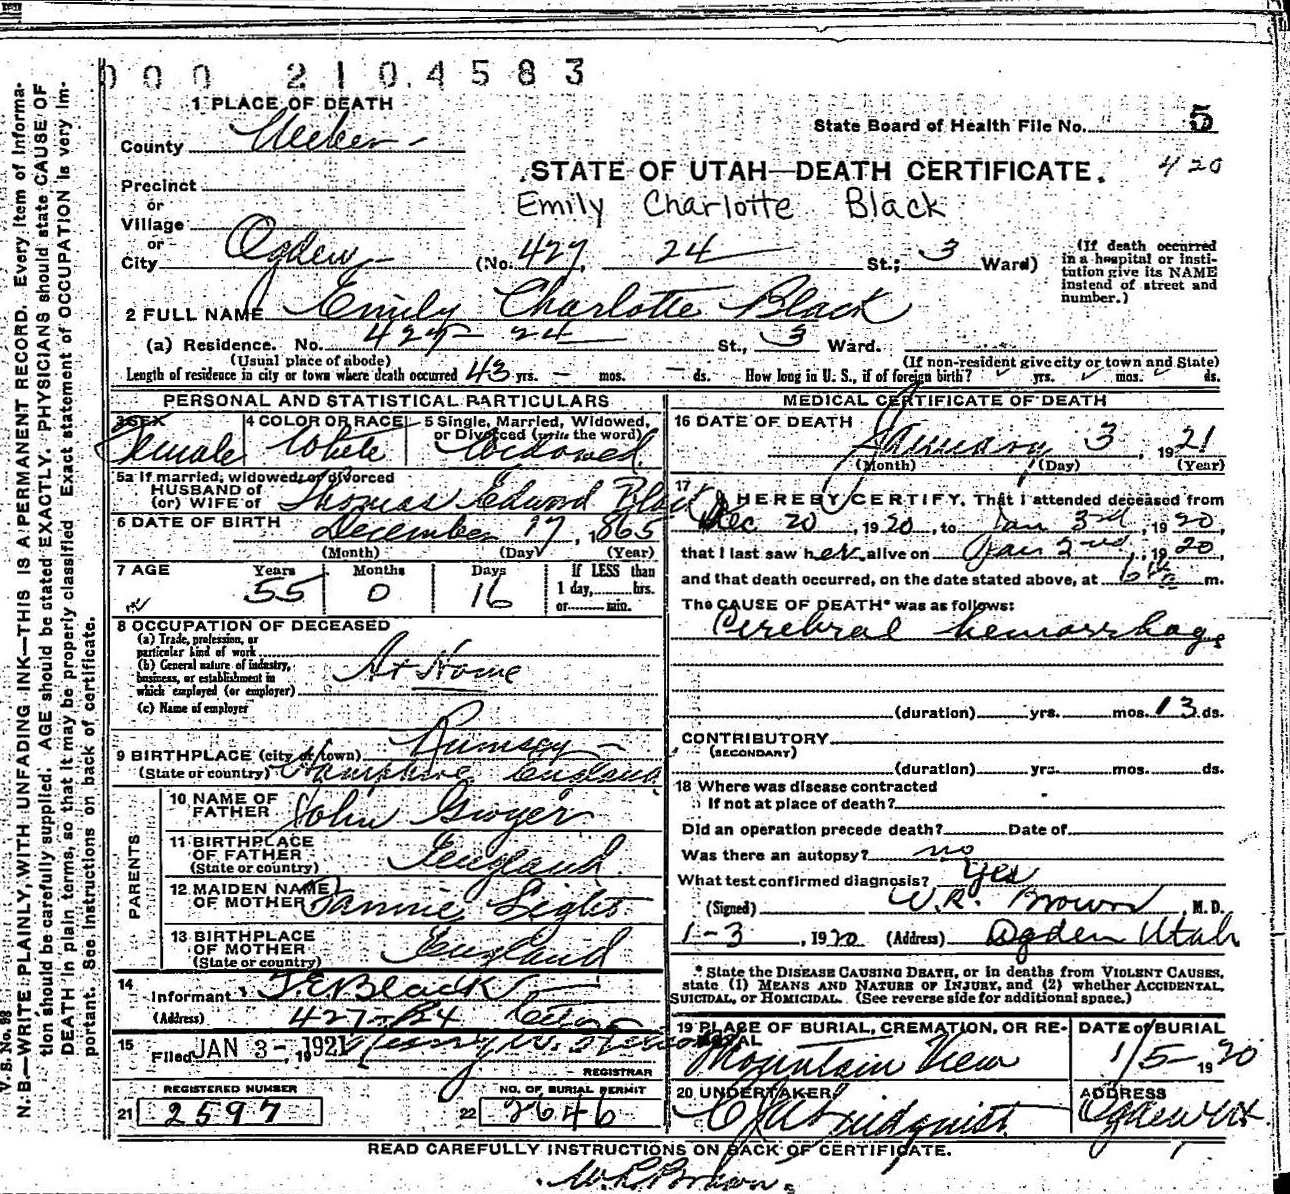 000 2104583
1 PLACE OF DEATH
County Weber
State Board of Health File No. 5
420
STATE OF UTAH—DEATH CERTIFICATE.
Emily Charlotte Black
Precinct
or
Village
or
City Ogden (No. 427, 24 St.; 3 Ward)
(If death occurred in a hospital or institution give its NAME instead of street and number.)
2 FULL NAME Emily Charlotte Black
(a) Residence. No. 427 - 24 St., 3 Ward.
(Usual place of abode) (If non-resident give city or town and State)
Length of residence in city or town where death occurred 43 yrs. - mos. - ds. How long in U. S., if of foreign birth? yrs. mos. ds.
PERSONAL AND STATISTICAL PARTICULARS
3 SEX Female
4 COLOR OR RACE White
5 Single, Married, Widowed, or Divorced (write the word) Widowed
5a If married, widowed, or divorced
HUSBAND of
(or) WIFE of Thomas Edword Black
6 DATE OF BIRTH December 17, 1865
(Month) (Day) (Year)
7 AGE Years 55 Months 0 Days 16 If LESS than 1 day, hrs. or min.
8 OCCUPATION OF DECEASED
(a) Trade, profession, or particular kind of work
(b) General nature of industry, business, or establishment in which employed (or employer) At Home
(c) Name of employer
9 BIRTHPLACE (city or town) Rumsey
(State or country) Hampshire, England
PARENTS
10 NAME OF FATHER John Gwyer
11 BIRTHPLACE OF FATHER (State or country) England
12 MAIDEN NAME OF MOTHER Fannie
13 BIRTHPLACE OF MOTHER (State or country) England
14 Informant T. E. Black
(Address) 427 - 24 City
15 Filed JAN 3 - 1921
REGISTRAR
REGISTERED NUMBER
21 2597
NO. OF BURIAL PERMIT
22 2646
MEDICAL CERTIFICATE OF DEATH
16 DATE OF DEATH January 3, 1921
(Month) (Day) (Year)
17 I HEREBY CERTIFY, That I attended deceased from
Dec 20, 1920, to Jan 3rd, 1920,
that I last saw her alive on Jan 2nd, 1920,
and that death occurred, on the date stated above, at 6 a m.
The CAUSE OF DEATH* was as follows:
Cerebral hemorrhage
(duration) yrs. mos. 13 ds.
CONTRIBUTORY
(SECONDARY)
(duration) yrs. mos. ds.
18 Where was disease contracted
If not at place of death?
Did an operation precede death? Date of
Was there an autopsy? no
What test confirmed diagnosis? Yes
(Signed) W.R. Brown M.D.
1-3, 1920 (Address) Ogden Utah
* State the DISEASE CAUSING DEATH, or in deaths from VIOLENT CAUSES,
state (1) MEANS AND NATURE OF INJURY, and (2) whether ACCIDENTAL,
SUICIDAL, or HOMICIDAL. (See reverse side for additional space.)
19 PLACE OF BURIAL, CREMATION, OR REMOVAL Mountain View
DATE of BURIAL 1/5 1920
20 UNDERTAKER Lindquist
ADDRESS Ogden Ut.
READ CAREFULLY INSTRUCTIONS ON BACK OF CERTIFICATE.
W. R. Brown.
V. S. No. 98
N. B.—WRITE PLAINLY, WITH UNFADING INK—THIS IS A PERMANENT RECORD. Every item of informa-
tion should be carefully supplied. AGE should be stated EXACTLY. PHYSICIANS should state CAUSE OF
DEATH in plain terms, so that it may be properly classified. Exact statement of OCCUPATION is very im-
portant. See instructions on back of certificate.